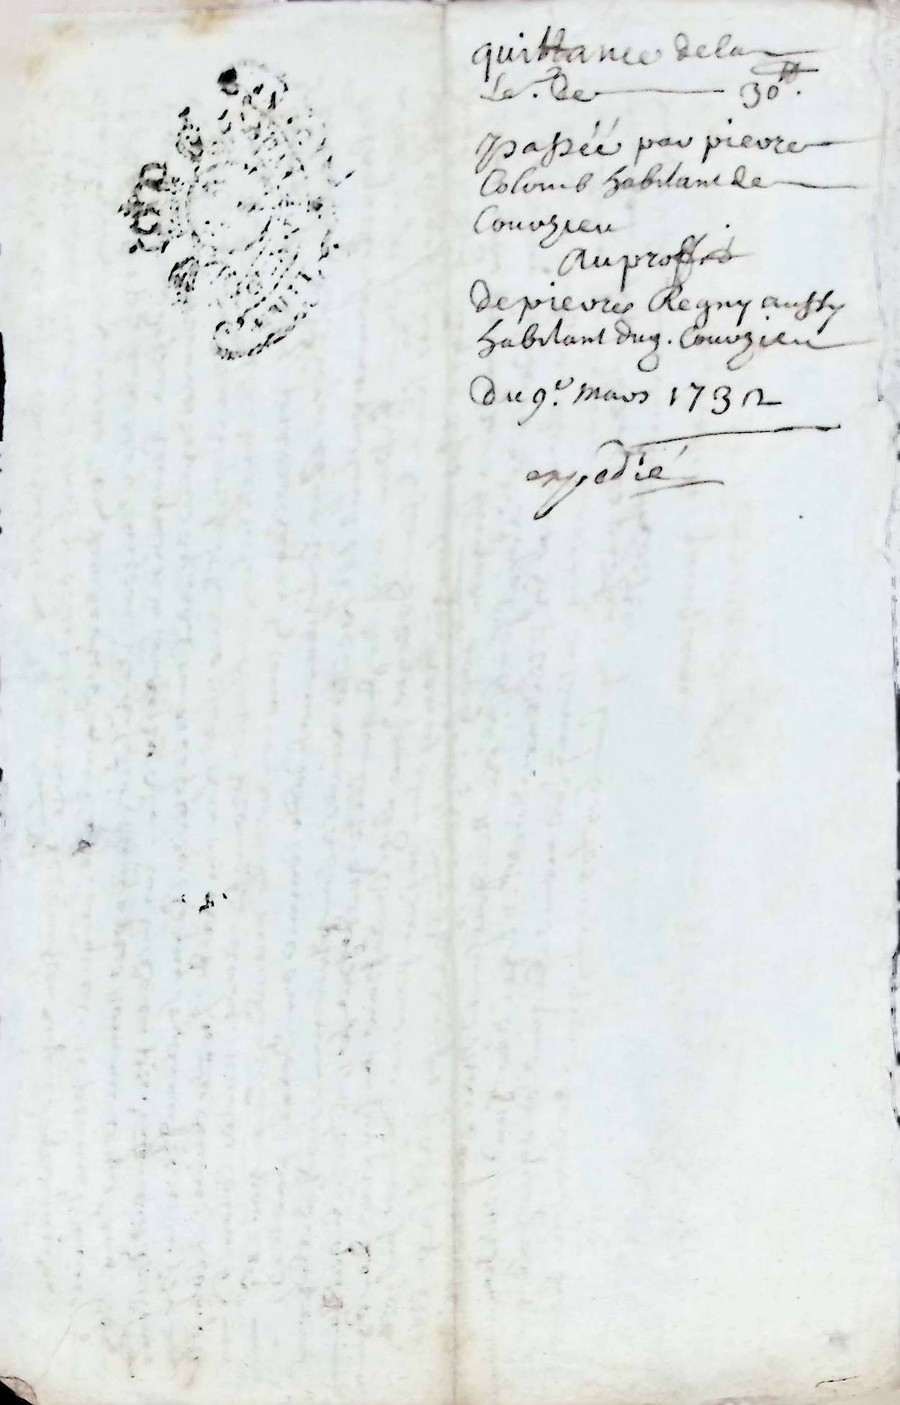 quittance dela
Se. de 30tt.
passéé par pierre
Colomb habitant de
Couvzieu
Auproffit
depierre Regny aussy
habitant dud. Couvzieu
Du 9e. mars 1732
expedié